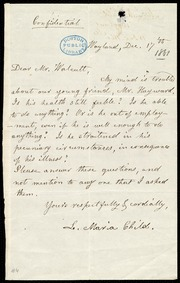 Confidential
BOSTON
PUBLIC
LIBRARY
Wayland, Dec. 17th
18
Dear Mr. Walcutt,
My mind is troubled
about our young friend, Mr. Hayward.
Is his health still feeble? Is he able
to do anything? Or is he out of employ-
ment, even if he is well enough to do
anything? Is he straitened in his
pecuniary circumstances, in consequence
of his illness?
Please answer these questions, and
not mention to any one that I asked
them.
Yours respectfully & cordially,
L. Maria Child.